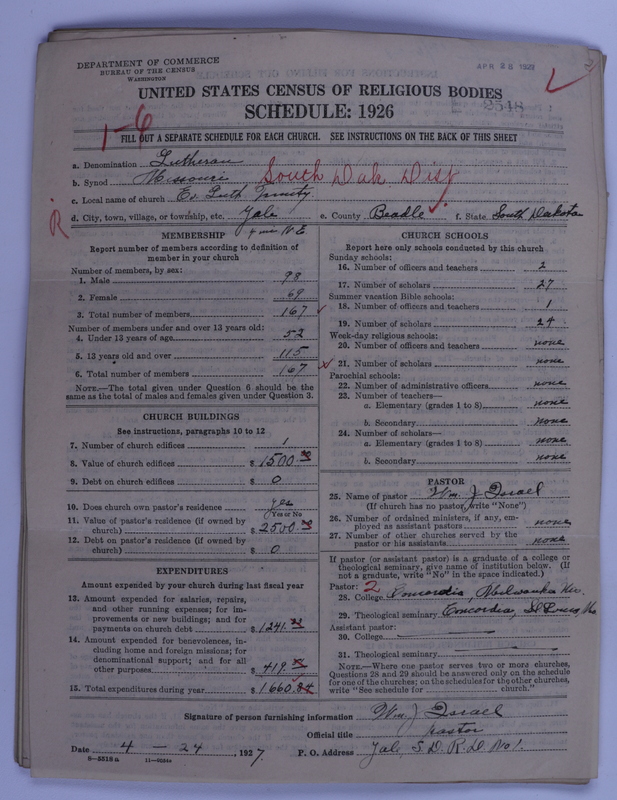 DEPARTMENT OF COMMERCE
BUREAU OF THE CENSUS
WASHINGTON
APR 28 1927
UNITED STATES CENSUS OF RELIGIOUS BODIES
SCHEDULE: 1926
2548
1-6
FILL OUT A SEPARATE SCHEDULE FOR EACH CHURCH. SEE INSTRUCTIONS ON THE BACK OF THIS SHEET
a. Denomination Lutheran
b. Synod Missouri South Dak Dist
c. Local name of church Ev. Luth Trinity
d. City, town, village, or township, etc. Yale e. County Beadle f. State South Dakota
R
MEMBERSHIP
Report number of members according to definition of
member in your church
Number of members, by sex:
1. Male 98
2. Female 69
3. Total number of members 167
Number of members under and over 13 years old:
4. Under 13 years of age 52
5. 13 years old and over 115
6. Total number of members 167
NOTE.—The total given under Question 6 should be the
same as the total of males and females given under Question 3.
CHURCH BUILDINGS
See instructions, paragraphs 10 to 12
7. Number of church edifices 1
8. Value of church edifices $ 1500.00
9. Debt on church edifices $ 0
10. Does church own pastor's residence yes
Yes or No
11. Value of pastor's residence (if owned by
church) $ 2500.00
12. Debt on pastor's residence (if owned by
church) $ 0
EXPENDITURES
Amount expended by your church during last fiscal year
13. Amount expended for salaries, repairs,
and other running expenses; for im-
provements or new buildings; and for
payments on church debt $ 1241.
14. Amount expended for benevolences, in-
cluding home and foreign missions; for
denominational support; and for all
other purposes $ 419.
15. Total expenditures during year $ 1660.84
CHURCH SCHOOLS
Report here only schools conducted by this church
Sunday schools:
16. Number of officers and teachers 2
17. Number of scholars 27
Summer vacation Bible schools:
18. Number of officers and teachers 1
19. Number of scholars 24
Week-day religious schools:
20. Number of officers and teachers none
21. Number of scholars none
Parochial schools:
22. Number of administrative officers none
23. Number of teachers—
a. Elementary (grades 1 to 8) none
b. Secondary none
24. Number of scholars—
a. Elementary (grades 1 to 8) none
b. Secondary none
PASTOR
25. Name of pastor Wm. J Israel
(If church has no pastor, write "None")
26. Number of ordained ministers, if any, em-
ployed as assistant pastors none
27. Number of other churches served by the
pastor or his assistants none
If pastor (or assistant pastor) is a graduate of a college or
theological seminary, give name of institution below. (If
not a graduate, write "No" in the space indicated.)
Pastor: 2
28. College Concordia, Milwaukee Wis.
29. Theological seminary Concordia, St Louis, Mo
Assistant pastor:
30. College
31. Theological seminary
NOTE.—Where one pastor serves two or more churches,
Questions 28 and 29 should be answered only on the schedule
for one of the churches; on the schedules for the other churches,
write "See schedule for church."
Signature of person furnishing information Wm. J Israel
Official title Pastor
Date 4 — 24, 1927. P. O. Address Yale, S. D. R. D. No 1.
8—5518a 11—9224a